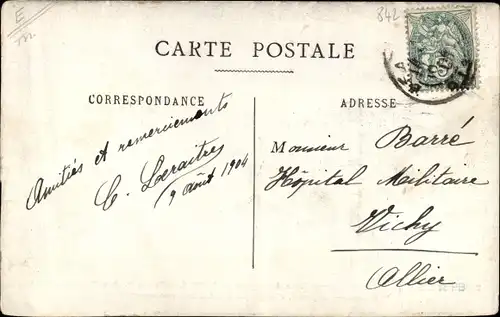 E
m.
842
CARTE POSTALE
CORRESPONDANCE
ADRESSE
Amitiés et remerciements
C. Leraitre
9 Août 1904
Monsieur Barré
Hôpital Militaire
Vichy
Allier